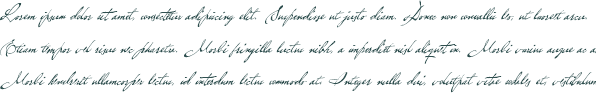 Lorem ipsum dolor sit amet, consectetur adipiscing elit. Suspendisse ut justo diam. Donec non convallis leo, ut laoreet arcu.
Etiam tempor vel risus nec pharetra. Morbi fringilla luctus nibh, a imperdiet nisl aliquet in. Morbi varius augue ac a
Morbi hendrerit ullamcorper lectus, id interdum lectus commodo at. Integer nulla dui, volutpat vitae sodales et, vestibulum